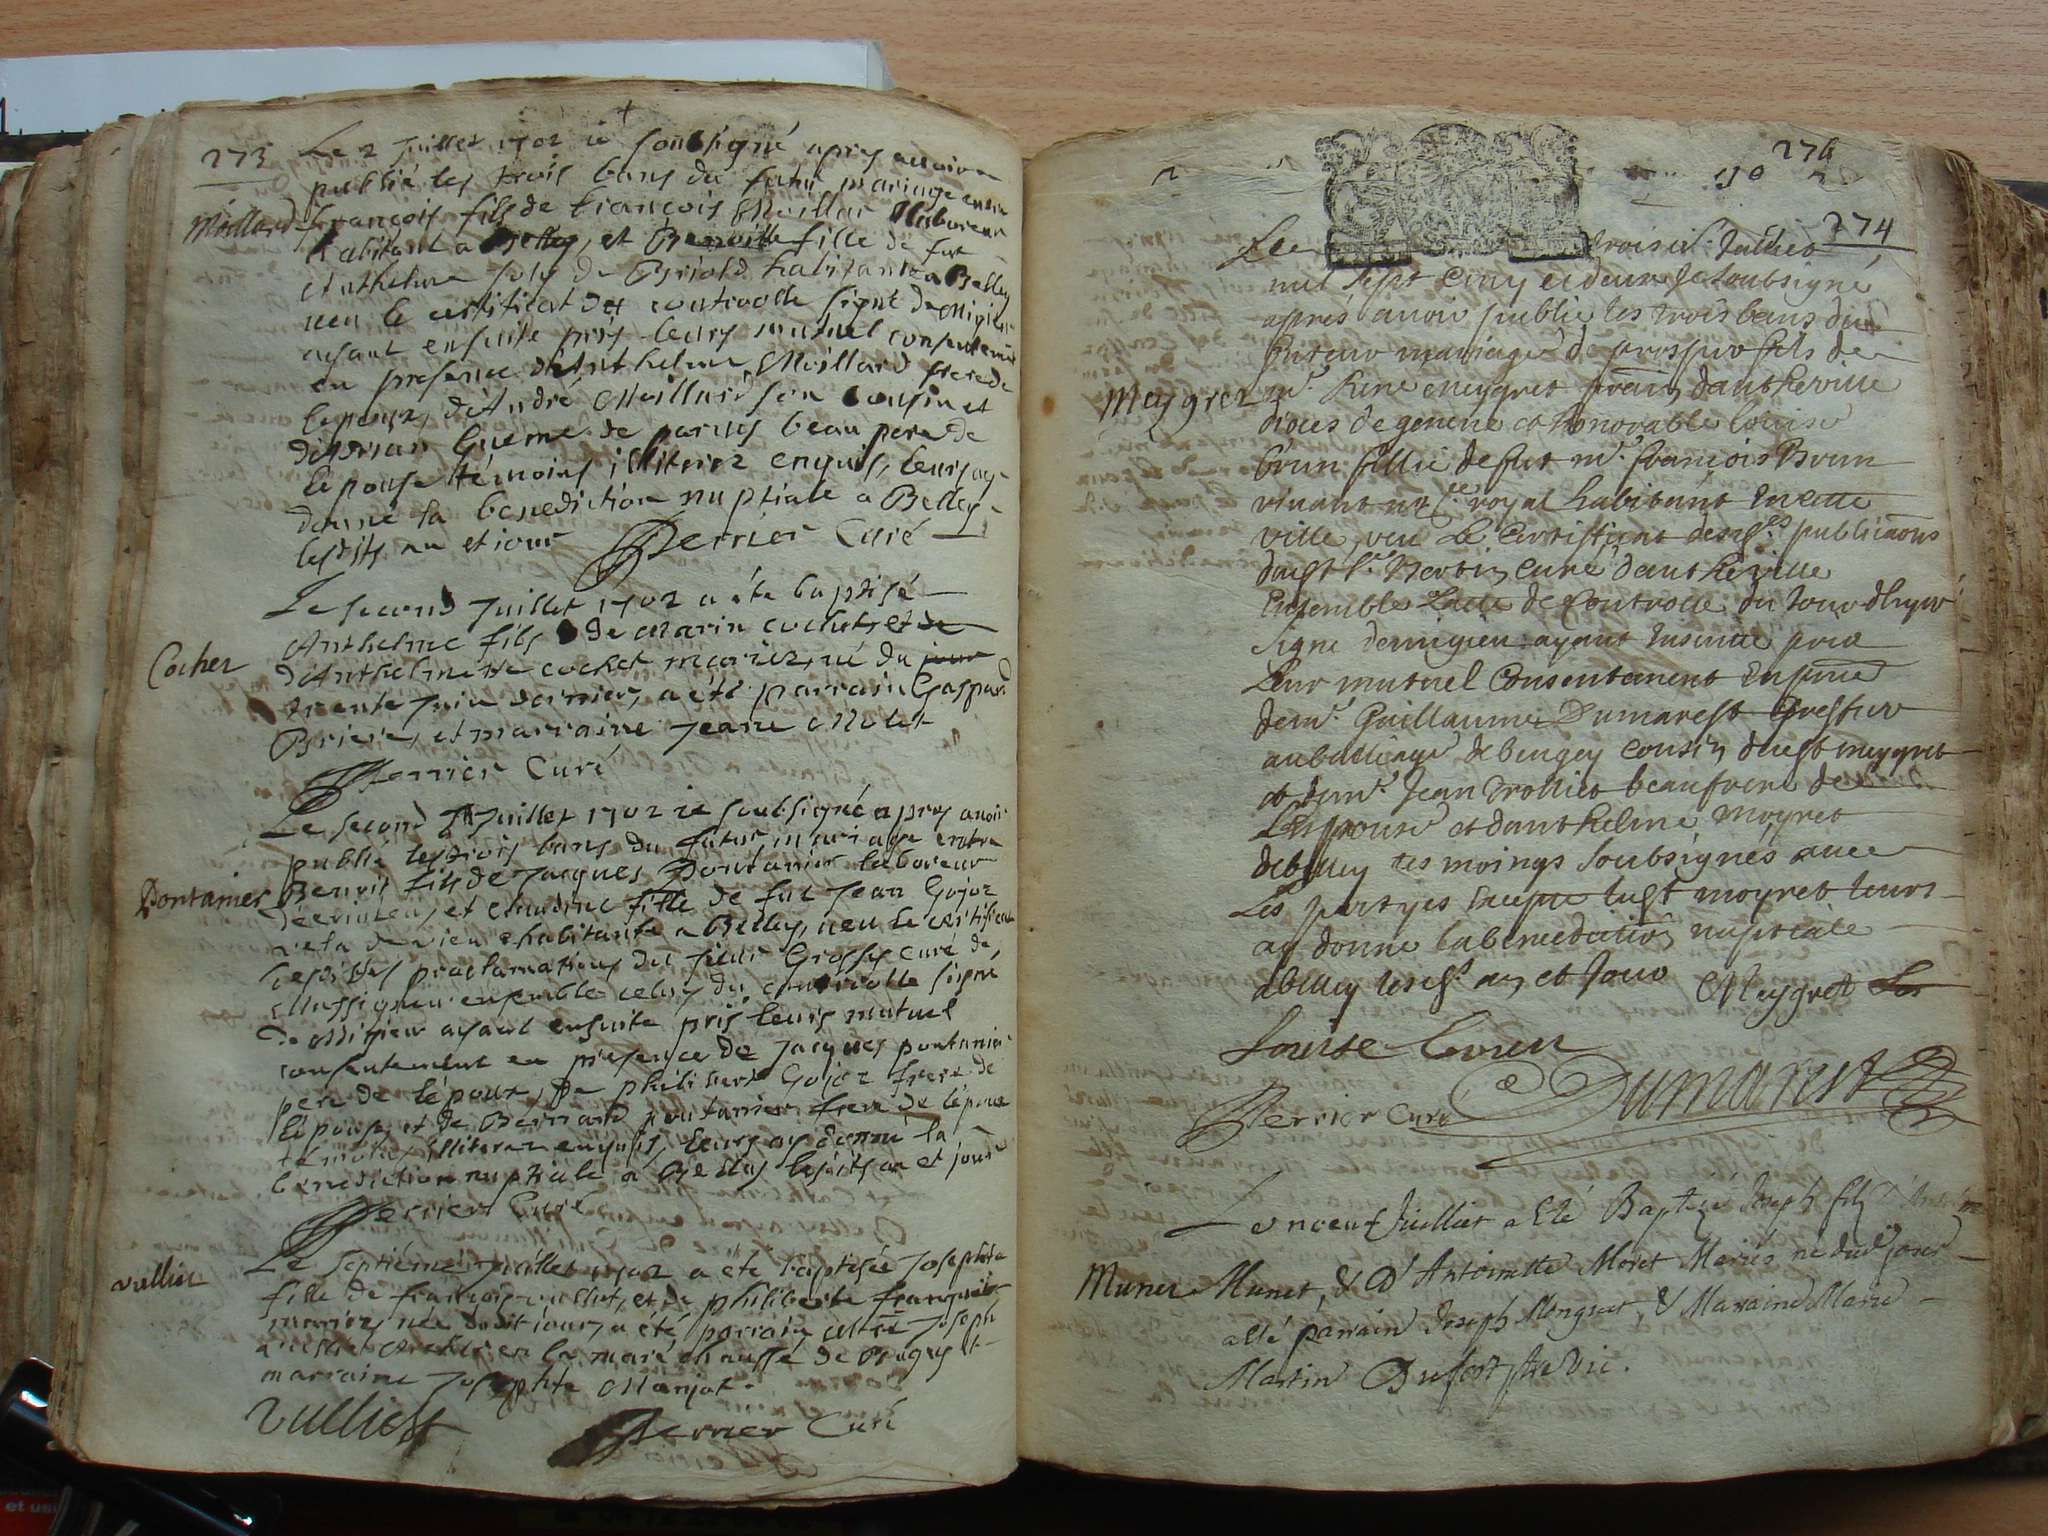 273
Le 2 Juillet 1702 ie soubsigné apres avoir
publié les trois bans du futur mariage entre
Maillard
françois fils de françois Maillar laboureur
habitant a Belley, et Benoitte fille de fut
Anthelme joly de Briord habitante a Belley
veu le certificat de controolle signé demigieu
ayant ensuite pris leurs mutuel consentement
en presence d'Anthelme Maillard frere de
lepoux, d'André Maillard son cousin et
guerne de parves beau pere de
lepouse témoins illiterez enquis, leurs ay
donné la benediction nuptiale a Belley
lesdits an et iour Perrier Curé
Le second Juillet 1702 a été baptisé
Anthelme fils de Marin cochet, et de
Cochet
d'Anthelmette cochet mariez, né du jour
trente Juin dernier, a été parrain Gaspard
Briere, et marraine Jeane Molet
Perrier Curé
Le second Juillet 1702 ie soubsigné apres avoir
publié les trois bans du futur mariage entre
Pontanier
Benoit fils de Jacques Pontanier laboureur
et claudine fille de fut Jean Gojoz
habitante a Belley, veu le certificat
desdites proclamations du sieur Grossy curé de
Massignieu ensemble celuy du controolle signé
De Migieu ayant ensuite pris leurs mutuel
consentement en presence de Jacques pontanier
pere de lépoux, De philibert Gojoz frere de
lépouse, et de Bernard pontanier frere de lépoux
témoins illiterez enquis, leurs ay donné la
benediction nuptiale a Belley lesdits an et jour
Perrier Curé
Le septiéme Juillet 1702 a été baptisée Josephte
vulliet
fille de françois vulliet, et de philiberte françois
mariez, née dudit jour, a été parrain Joseph
archer en la maréchaussé de Bugey et
marraine Josephte Manjot.
Vulliest
Perrier Curé
276
1702
274
Le troisie. Juillet
mil sept Cents et deux Je soubsigné
apres avoir publié les trois bans du
futeur mariage de prospro fils de
Meygret
mr. Rene meygret
dioces de geneve et honorable louise
brun fille de fut mr. françois Brun
vivant royal habitant en cette
ville, veu Le Certificat desd. publicaons
curé dantheville
Ensemble Lacte de Controlle du Jour dhyer
signe demigieu ayant Ensuitte pris
Leur mutuel Consentement En presence
de mr. Guillaume Dumarest Greffier
au balliage de beugey cousin dudt meygret
et de mr. Jean trolliet beaufrere de
Lespouse et danthelme moyret
de belley tesmoings soubsignés avec
Les partyes Excepte ludt moyret leurs
ay donné la benediction nuptiale
a belley lesd. an et Jour Meygret
Louise brun
Dumarest
Perrier Curé
Le noeuf Juillet a Eté Baptizé Joseph filz
Munet
Munet, & D'Antoinette Moret Mariés né dud jour
a été parrain Joseph Mongnet, & Marraine Marie
Martin Dufort ptre vic.